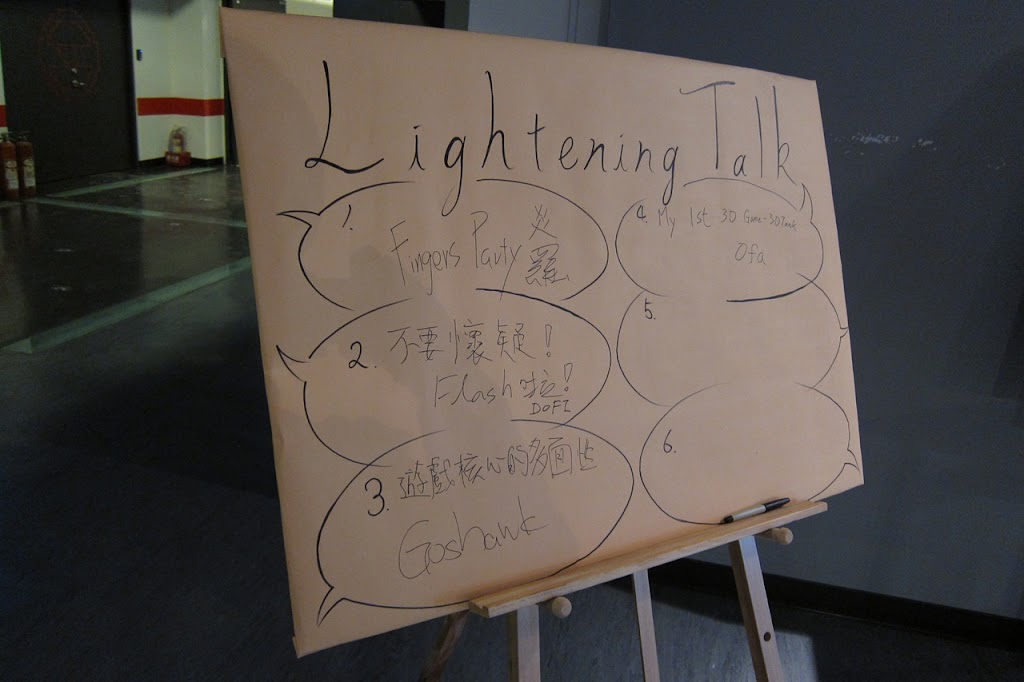 Lightening Talk
1.
Fingers Party
2. 不要懷疑!
Flash啦!
DOFI
3. 遊戲核心的多面性
Goshawk
4. My 1st 3D Game - 3D Tank
Ofa
5.
6.